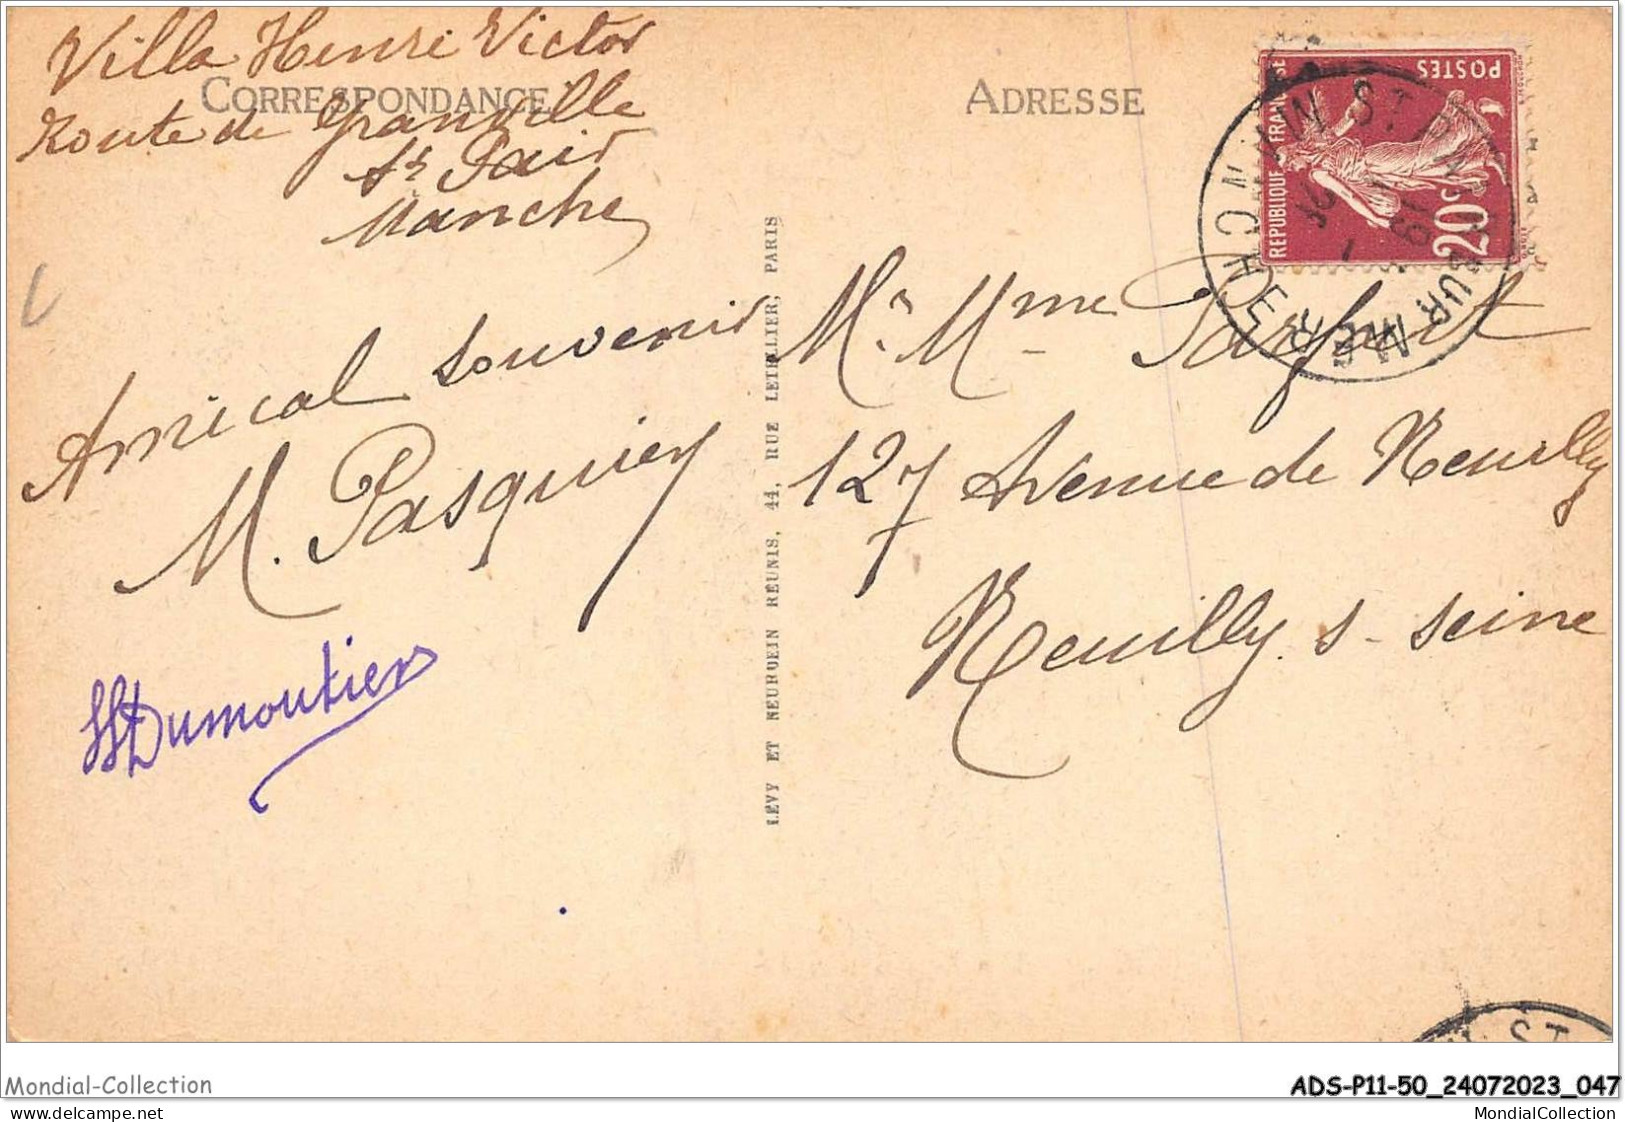 Villa Henri Victor
CORRESPONDANCE
Route de Granville
St Pair
Manche
Amical souvenir
M. Pasquier
Dumoutier
LÉVY ET NEURDEIN RÉUNIS, 44, RUE LETELLIER, PARIS
ADRESSE
POSTES
REPUBLIQUE FRANÇAISE
20c
Mr Mme Parfait
127 Avenue de Neuilly
Neuilly s- Seine
ST
Mondial-Collection
delcampe.net
ADS-P11-50_24072023_047
MondialCollection